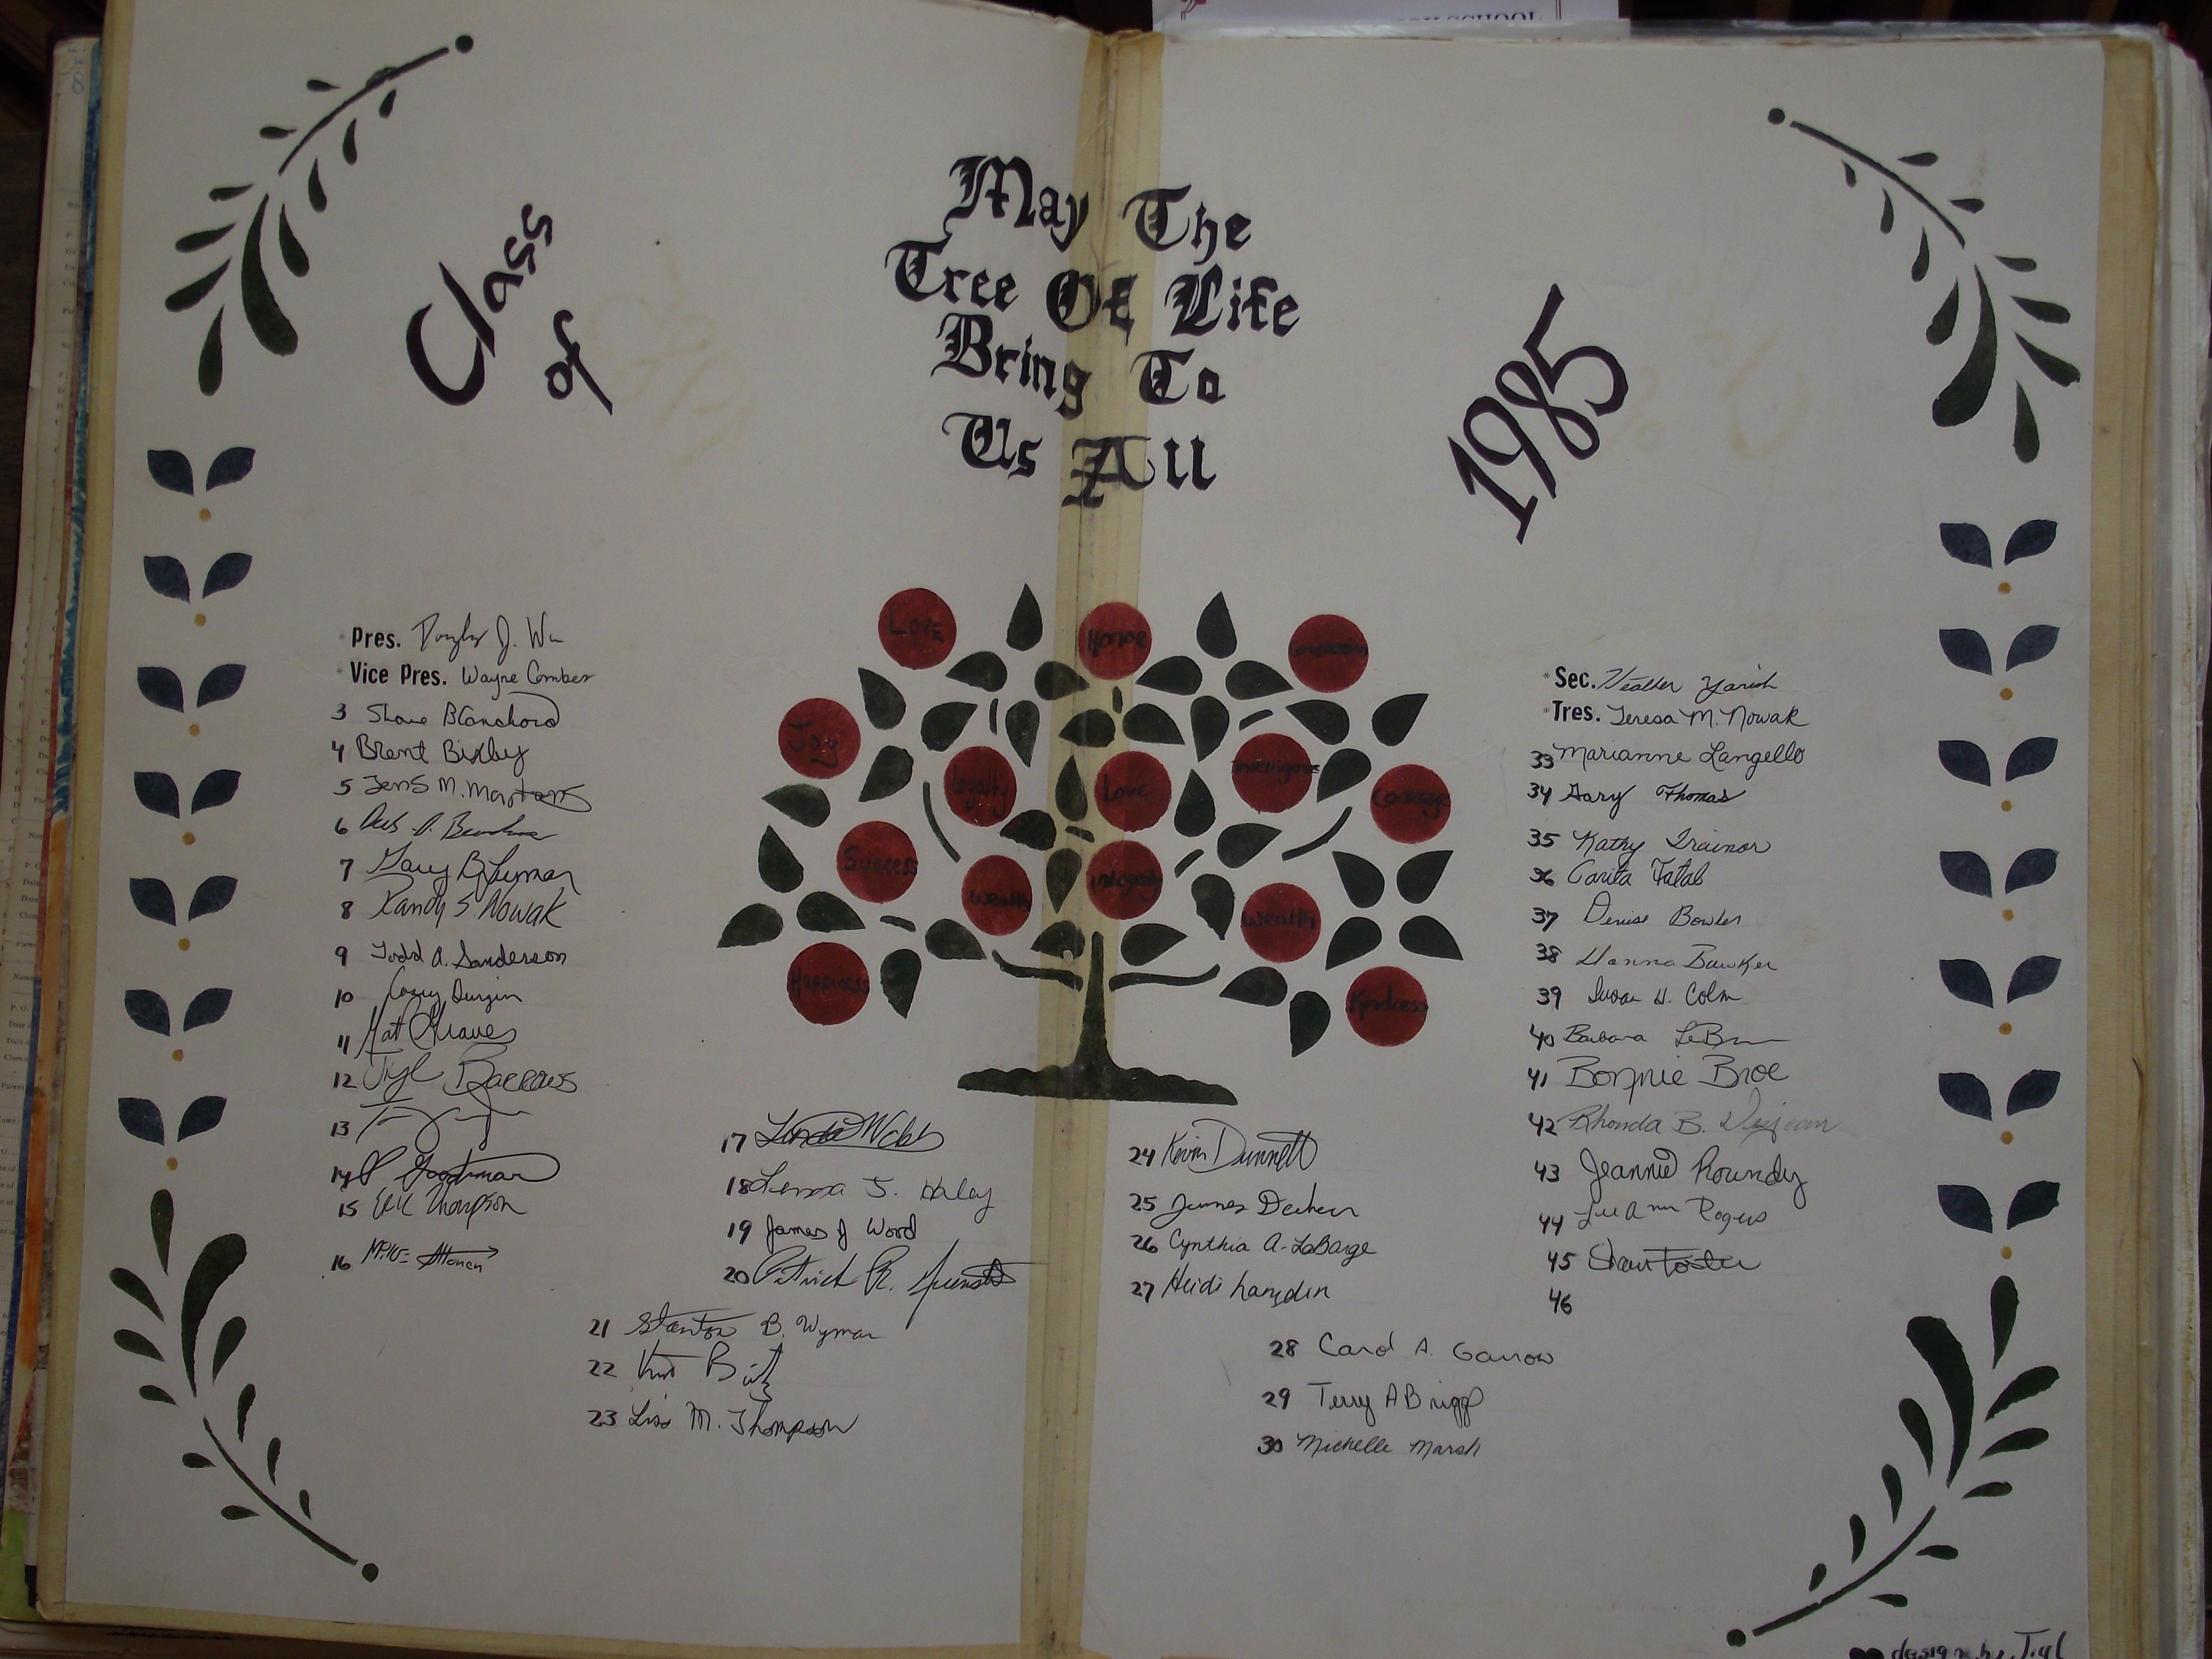 SCHOOL
Class
of
May The
Tree Of Life
Bring To
Us All
1985
Love
Honor
Joy
Loyalty
Love
Courage
Success
Wealth
Integrity
Wealth
Happiness
Kindness
Pres. J.
Vice Pres. Wayne Comber
3 Shane Blanchard
4 Brent Bixby
5 Jens M. Martens
6
7 Gary B. Lyman
8 Randy S. Nowak
9 Todd A. Sanderson
10 Casey Durgin
11 Mat Graves
12 Jiyl Barrows
13
14 Goodman
15 Eric Thompson
16 Mike
17 Linda Webb
18 J. Haley
19 James J Wood
20 Patrick R.
21 Stanton B. Wyman
22
23 Lisa M. Thompson
24 Kevin Dunnett
25 James
26 Cynthia A. LaBarge
27 Heidi Langdon
28 Carol A. Garrow
29 Terry A Briggs
30 Michelle Marsh
Sec. Heather Yarish
Tres. Teresa M. Nowak
33 Marianne Langello
34 Gary Thomas
35 Kathy Trainor
36 Carita Fatal
37 Denise Bowler
38 Donna Bawker
39 Susan H. Colm
40 Barbara
41 Bonnie Broe
42 Rhonda B.
43 Jeannie Roundy
44 LuAnn
45 Foster
46
design by Jiyl